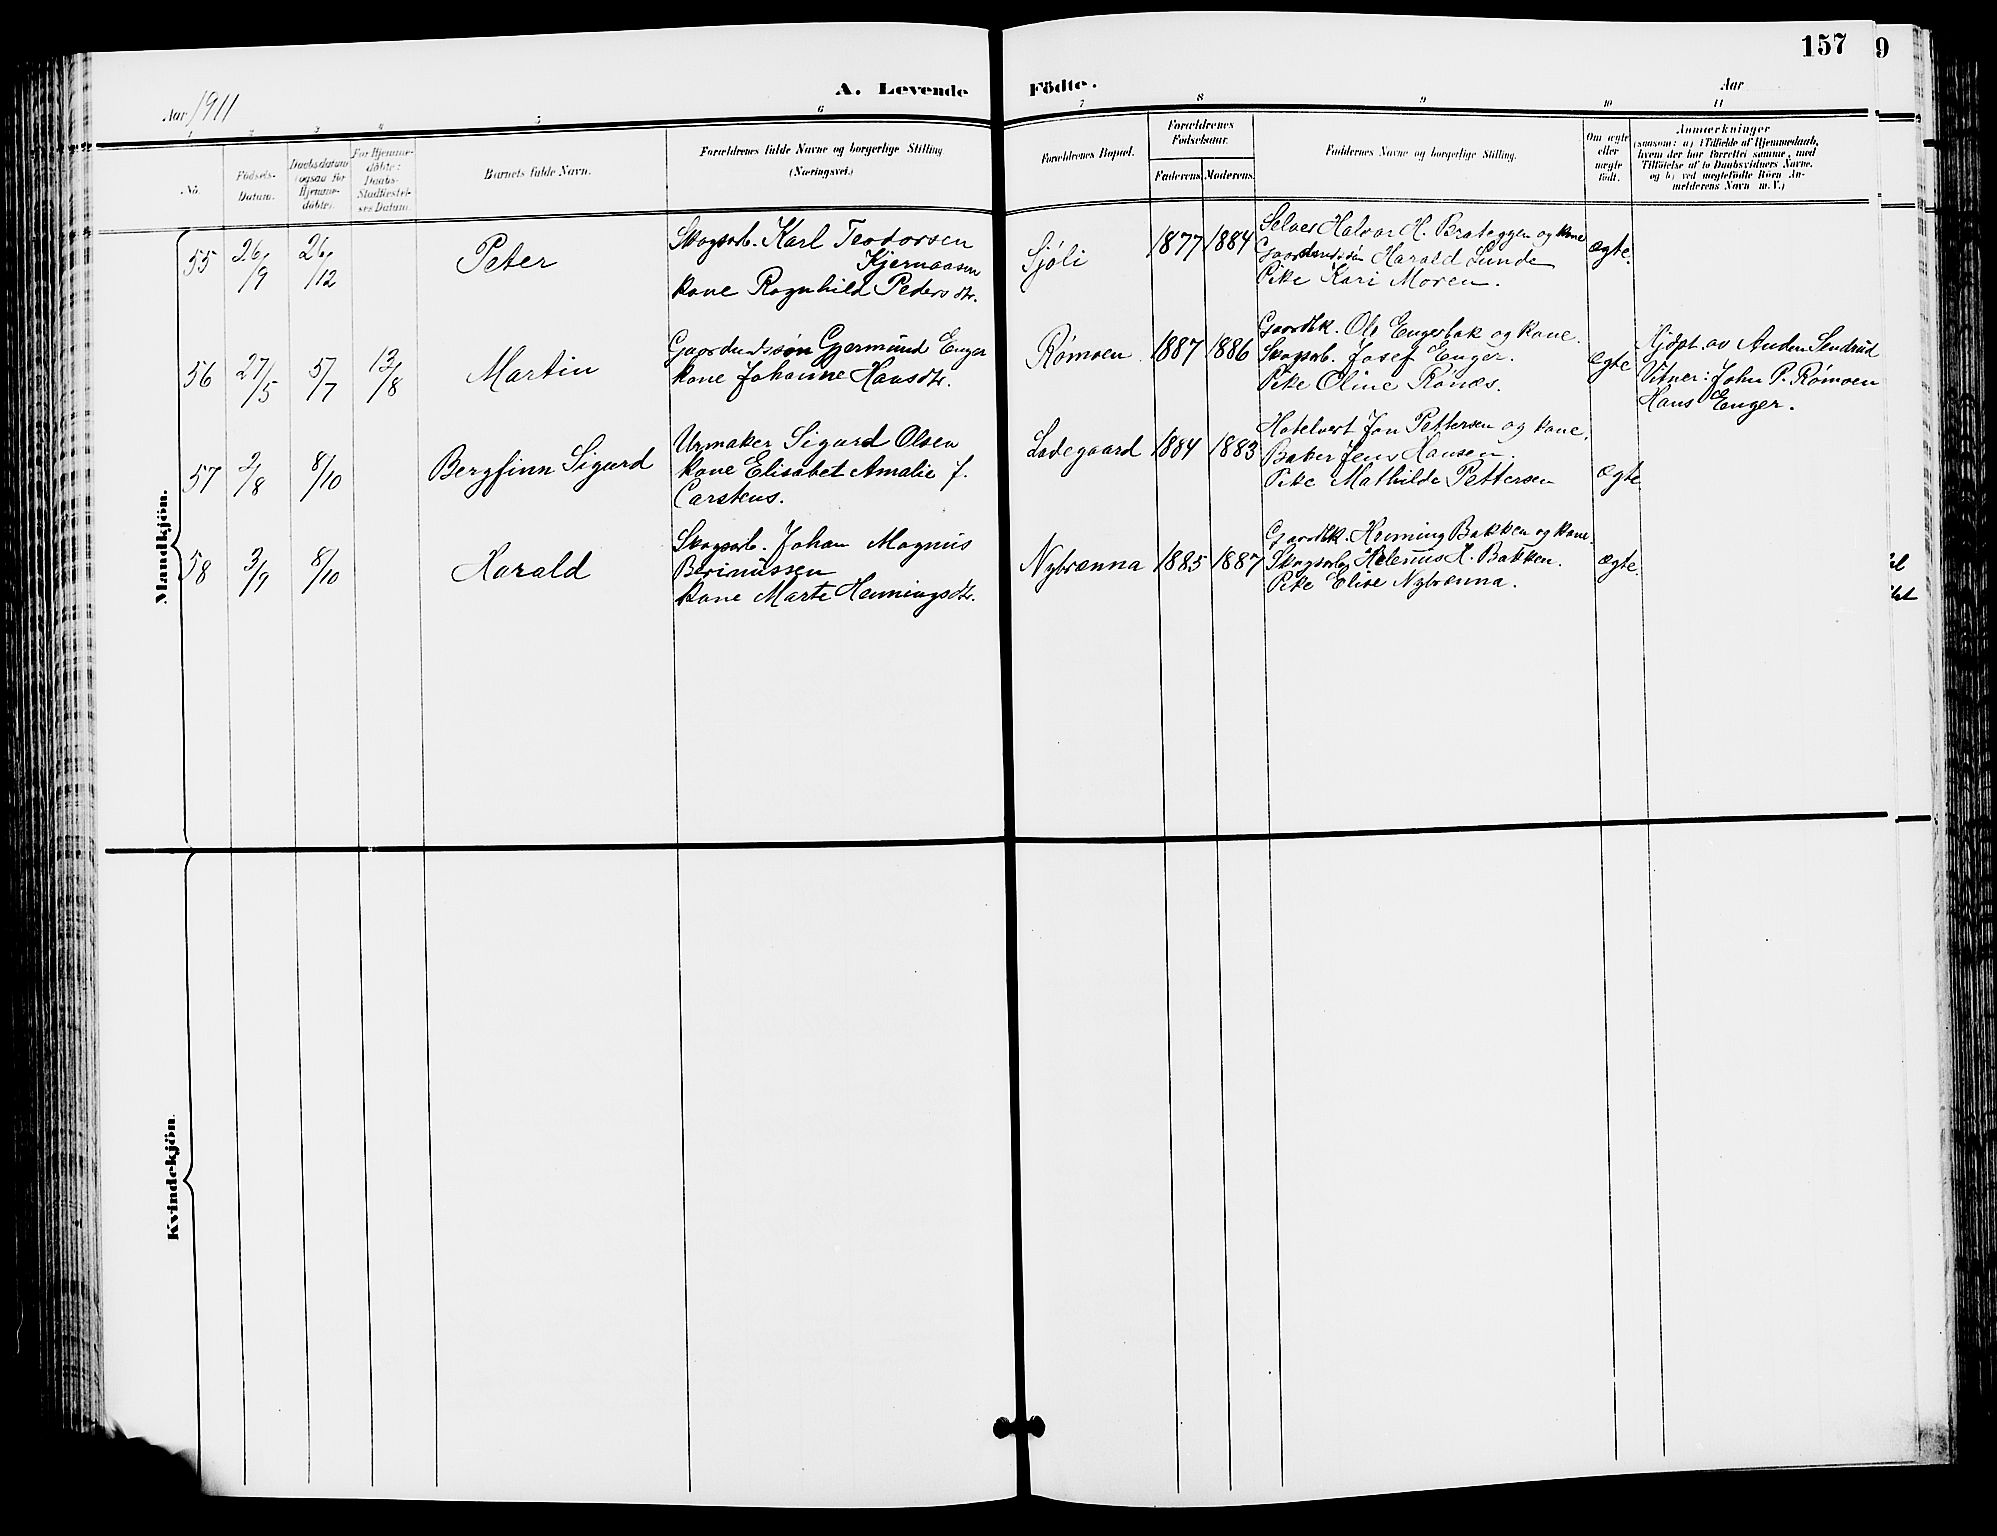 157
9
A. Levende Födte.
Aar 1911
Aar
1 2 3 4 5 6 7 8 9 10 11
No.
Födsels-
Datum.
Daabsdatum
(ogsaa for
Hjemme-
döbte).
For Hjemme-
döbte:
Daabs-
Stadfæstel-
ses Datum.
Barnets fulde Navn.
Forældrenes fulde Navne og borgerlige Stilling
(Næringsvei.)
Forældrenes Bopæl.
Forældrenes
Födselsaar.
Faderens Moderens
Faddernes Navne og borgerlige Stilling.
Om ægte
eller
uægte
født.
Anmærkninger
(saasom: a) i Tilfælde af Hjemmedaab,
hvem der har forrettet samme, med
Tilföielse af to Daabsvidners Navne.
og b) ved uægtefödte Börn An-
melderens Navn m. V.)
Mandkjön.
55 26/9 26/12 Peter
Skogsarb. Karl Teodorsen
Kjernaasen
kone Ragnhild Pedersdtr.
Sjöli 1877 1884
Selveier Halvor H. Brateggen og kone
Gaardmandssön Harald Lunde
Pike Kari Moren.
ægte.
56 27/5 5/7 13/8 Martin
Gaardmdssön Gjermund Enger
kone Johanne Hansdtr.
Rømoen 1887 1886
Gaardbk. Ole Engerbak og kone.
Skogsarb. Josef Enger.
Pike Oline Rønæs.
ægte
Hjdpt. av Anders Sendrud
Vitner: John P. Rømoen
Hans Enger.
57 2/8 8/10 Bergfinn Sigurd
Urmaker Sigurd Olsen
kone Elisabet Amalie f.
Carstens.
Ladegaard 1884 1883
Hotelvert Jon Pettersen og kone.
Baker Jens Hansen.
Pike Mathilde Pettersen
ægte
58 3/9 8/10 Harald
Skogsarb. Johan Magnus
Berinussen
kone Marte Henningsdtr.
Nybrænna 1885 1887
Gaardbk. Henning Bakken og kone.
Skogsarb. Helenus H. Bakken.
Pike Elise Nybrænna.
ægte.
Kvindekjön.